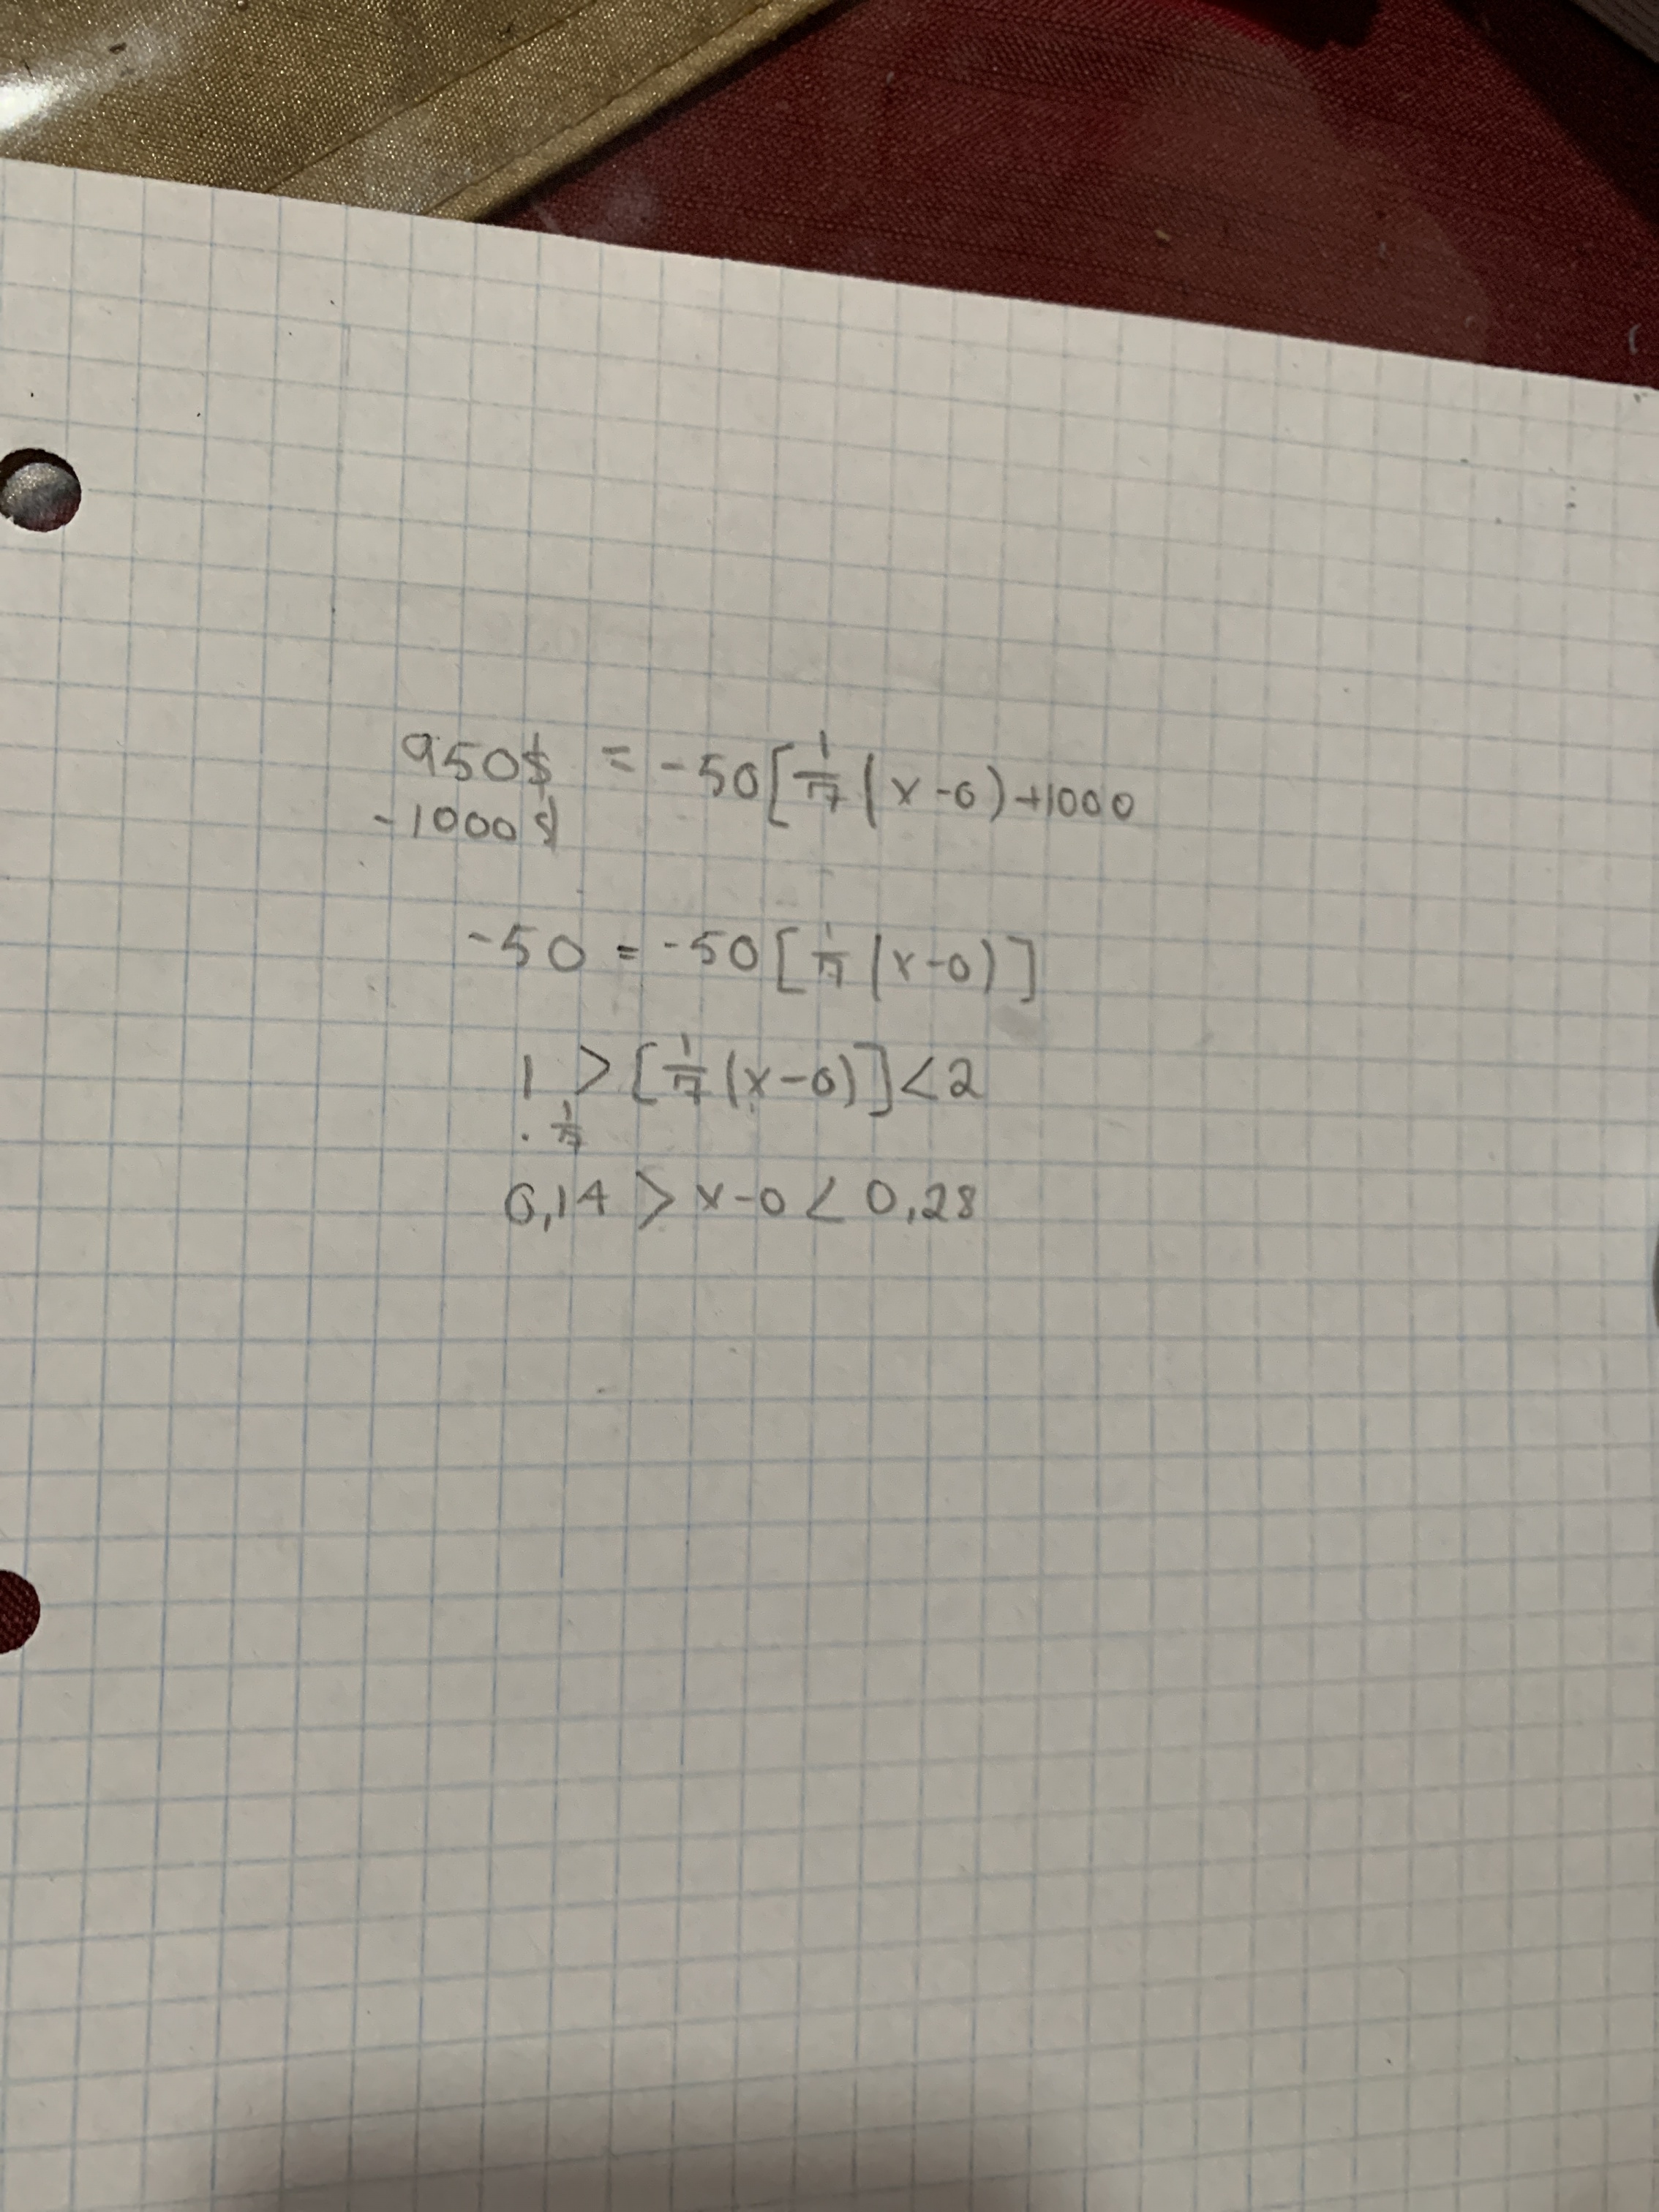 950$ = -50[1/7(x-0)+1000
-1000$
-50 = -50[1/7(x-0)]
1 > [1/7(x-0)]<2
. 1/7
0,14 > x-0 < 0,28